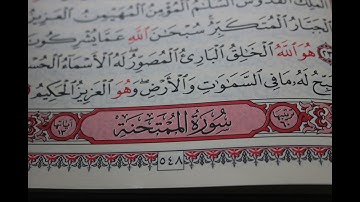 الملك القدوس السلم المؤمن المهيمن العزيز
الجبار المتكبر سبحن الله عما يشركون
هو الله الخلق البارئ المصور له الأسماء الحسنى
يسبح له ما فى السموت والأرض وهو العزيز الحكيم
سورة الممتحنة
آياتها ١٣
ترتيبها ٦٠
٥٤٨